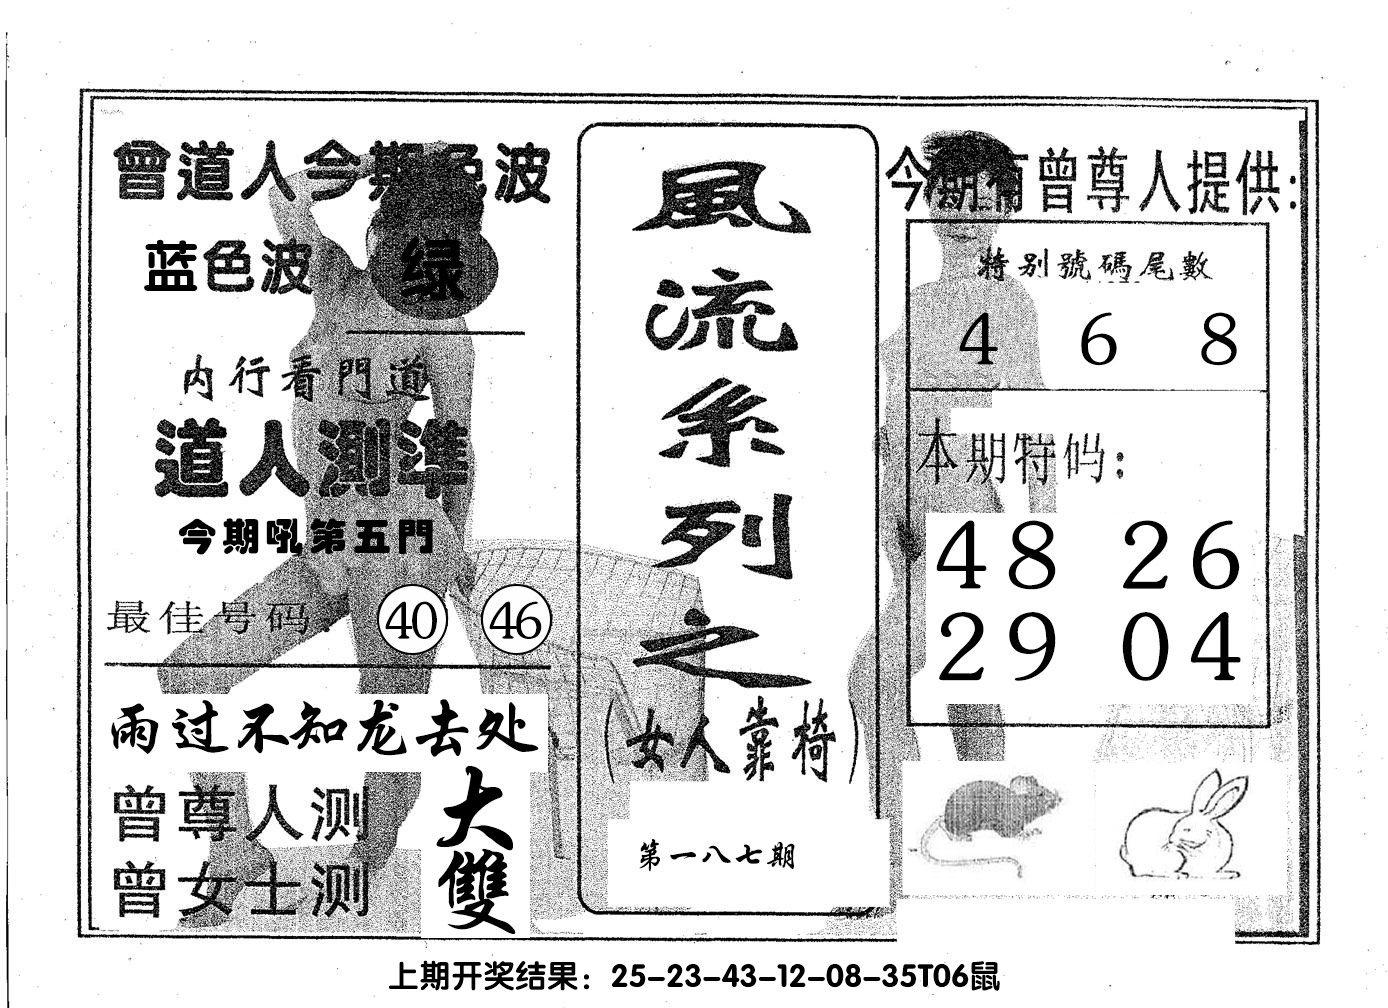 曾道人今期色波
蓝色波 绿
内行看門道
道人測準
今期吼第五門
最佳号码: 40 46
雨过不知龙去处
曾尊人测 大
曾女士测 雙
風流系列之
(女人靠椅)
第一八七期
今期有曾尊人提供:
特别號碼尾數
4 6 8
本期特码:
48 26
29 04
上期开奖结果：25-23-43-12-08-35T06鼠